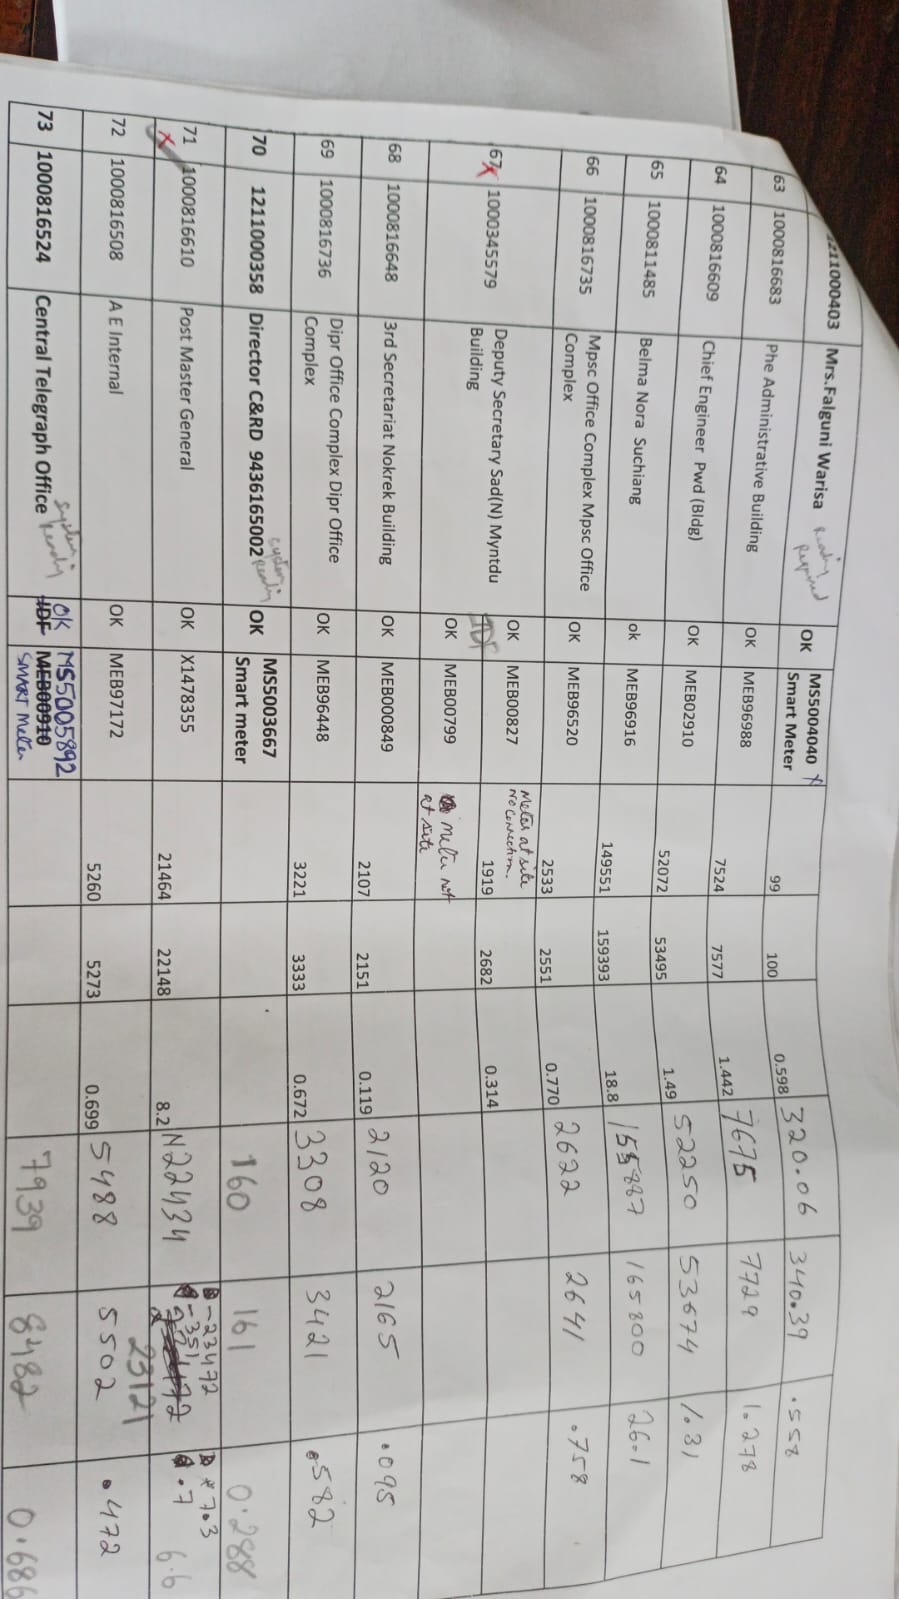 1211000403 Mrs.Falguni Warisa Ready Required OK MS5004040 x Smart Meter 99 100 0.598 320.06 340.39 .558
63 1000816683 Phe Administrative Building OK MEB96988 7524 7577 1.442 7675 7729 1.278
64 1000816609 Chief Engineer Pwd (Bldg) OK MEB02910 52072 53495 1.49 52250 53674 1.31
65 1000811485 Belma Nora Suchiang ok MEB96916 149551 159393 18.8 155887 165800 26.1
66 1000816735 Mpsc Office Complex Mpsc Office Complex OK MEB96520 2533 2551 0.770 2622 2641 .758
67 x 1000345579 Deputy Secretary Sad(N) Myntdu Building OK MEB00827 Meter at site No Connection. 1919 2682 0.314
IDF OK MEB00799 meter not at site
68 1000816648 3rd Secretariat Nokrek Building OK MEB000849 2107 2151 0.119 2120 2165 .095
69 1000816736 Dipr Office Complex Dipr Office Complex OK MEB96448 3221 3333 0.672 3308 3421 .582
70 1211000358 Director C&RD 9436165002 OK MS5003667 Smart meter 160 161 0.288
71 x 1000816610 Post Master General OK X1478355 21464 22148 8.2 N22434 -23472 -351 23121 7.3 .7 6.6
72 1000816508 A E Internal OK MEB97172 5260 5273 0.699 5488 5502 .472
73 1000816524 Central Telegraph Office OK IDF MS5005892 MEB00910 SMART Meter 7939 8482 0.686